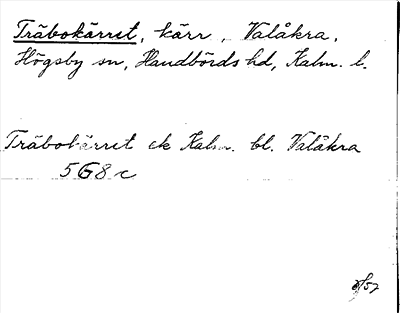 Träbokärret, kärr, Valåkra,
Högsby sn, Handbörds hd, Kalm. l.
Träbokärret ek Kalm. bl. Valåkra
5G8c